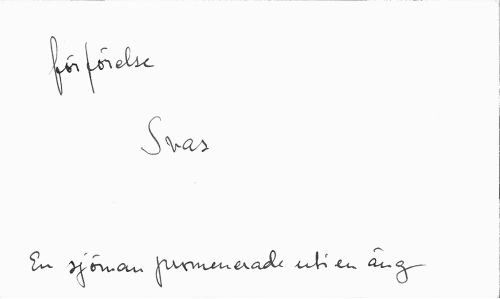 förförelse
Svas
En sjöman promenerade uti en äng